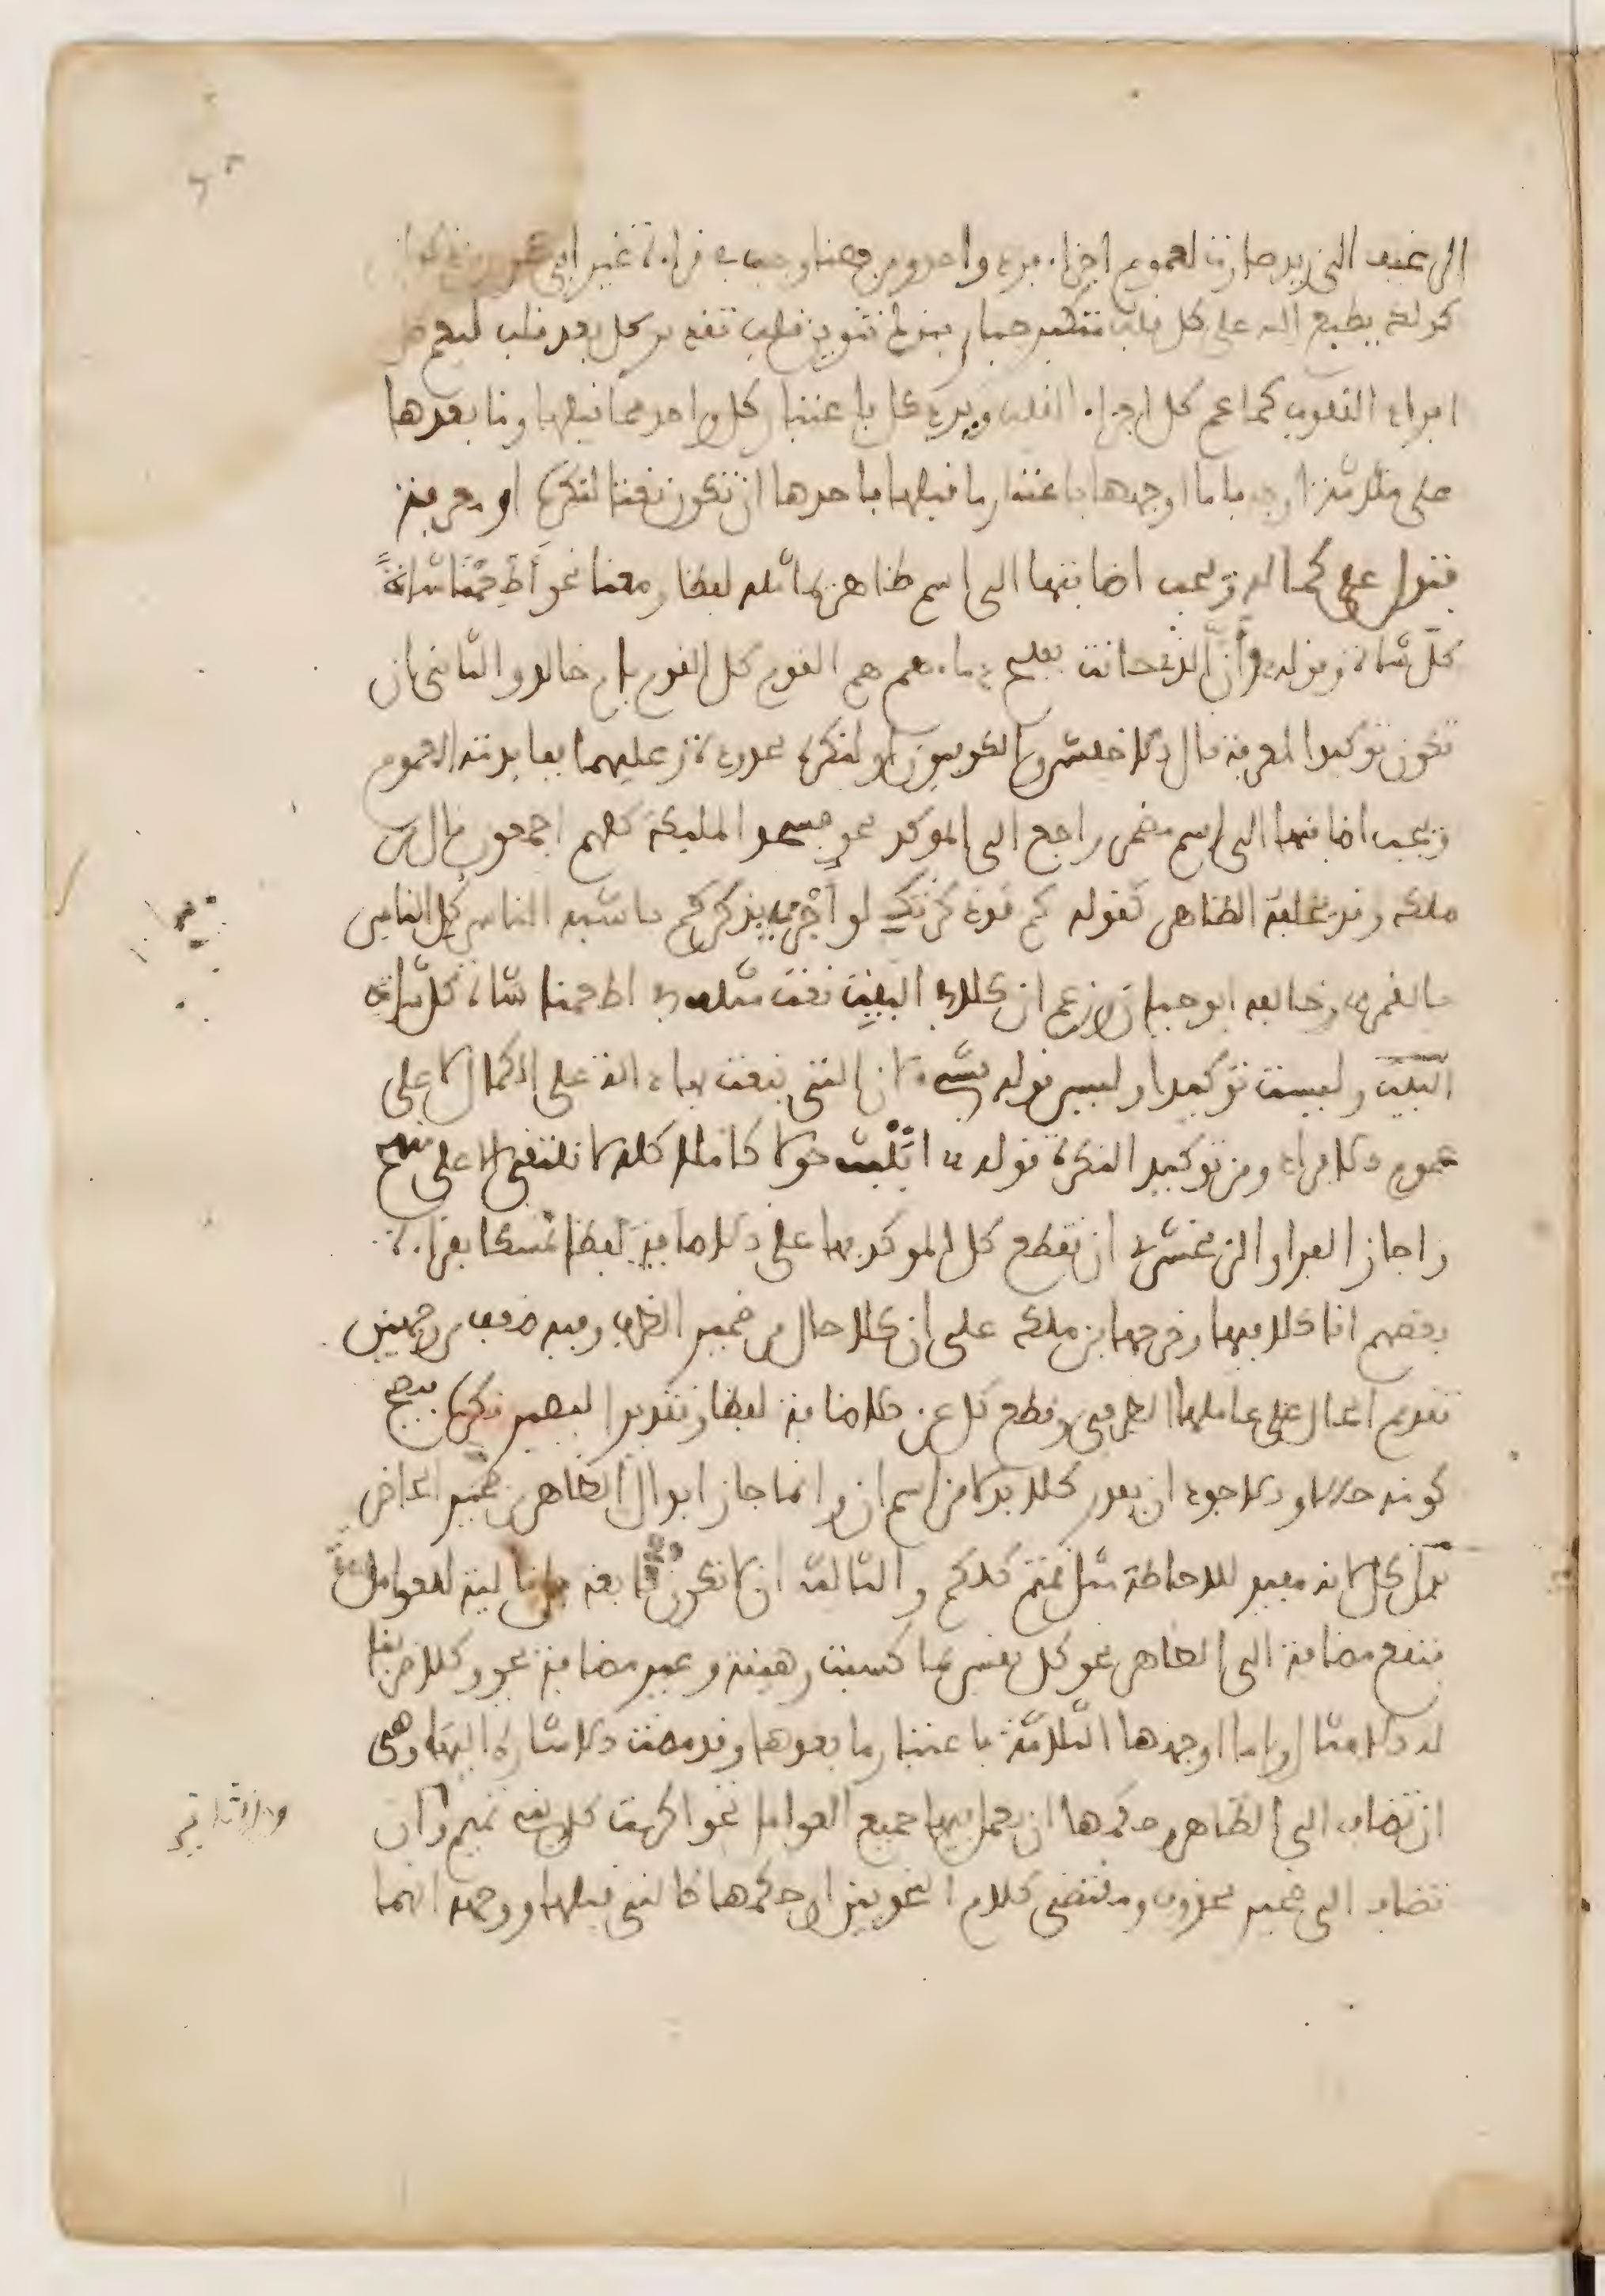 الى رغيف لزيد صارت لعموم اجزاء فرد واحد ومن هنا وجب في قراءة غير ابي عمرو
كذلك يطبع الله على كل قلب متكبر جبار بترك تنوين قلب تقدير كل بعد قلب ليعم
افراد القلوب كما عم كل اجزاء القلب وترد كل باعتبار كل واحد مما قبلها وما بعدها
على ثلاثة اوجه فاما اوجهها باعتبار ما قبلها فاحدها ان تكون نعتا لنكرة او معرفة
فتدل على كماله وتجب اضافتها الى اسم ظاهر يماثله لفظا ومعنا نحو أطعمنا شاةً
كلّ شاة وقوله وأنّ الذي حانت بفلج دماءهم هم القوم كل القوم يا م خالد والثاني ان
تكون توكيدا لمعرفة قال الاخفش والكوفيون او لنكرة محدودة وعليهما ففايدته العموم
وتجب اضافتها الى اسم مضمر راجع الى الموكد نحو فسجد المليكة كلهم اجمعون قال بن
ملك وقد يخلفه الظاهر كقوله كم قد ذكرتك لو أجزى بذكركم يا شبه الناس كل الناس
بالقمر وخالفه ابو حيان وزعم ان كلا في البيت نعت مثلها في اطعمنا شاة كل شاة
وليست توكيدا وليس قوله بشيء لان التي ينعت بها دالة على الكمال لا على
عموم الافراد ومن توكيد النكرة قوله حولا كاملا كله لا نلتقي الا على منهج
واجاز الفرا والزمخشري ان تقطع كل الموكد بها على الاضافة لفظا تمسكا بقراءة
بعضهم انا كلا فيها وخرجها بن ملك على ان كلا حال من ضمير الظرف وفيه ضعف من وجهين
تقديم الحال على عاملها الظرفي وقطع كل عن الاضافة لفظا وتقديرا لتصير نكرة فيصح
كونه حالا والاجود ان يقدر كلا بدلا من اسم ان وانما جاز ابدال الظاهر من ضمير الحاضر
بدل كل لانه مفيد للاحاطة مثل قمتم كلكم والثالث ان لا تكون تابعة بل تالية للعوامل
فتقع مضافة الى الظاهر نحو كل نفس بما كسبت رهينة وغير مضافة نحو وكلا ضربنا
له الامثال واما اوجهها الثلاثة باعتبار ما بعدها فقد مضت الاشارة اليها وهي
ان تضاف الى الظاهر وحكمها ان يعمل فيها جميع العوامل نحو اكرمت كل بني تميم وان
تضاف الى ضمير محذوف ومقتضى كلام النحويين ان حكمها كالتي قبلها ووجهه انهما